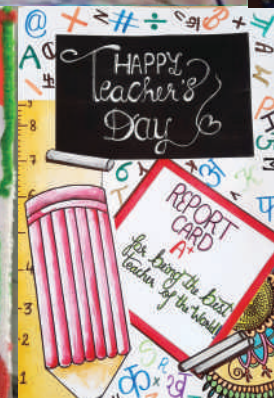 @ + × # ÷
HAPPY
Teacher's
Day
8
7
6
4
3
2
1
REPORT
CARD
A+
for being the best
Teacher of the World